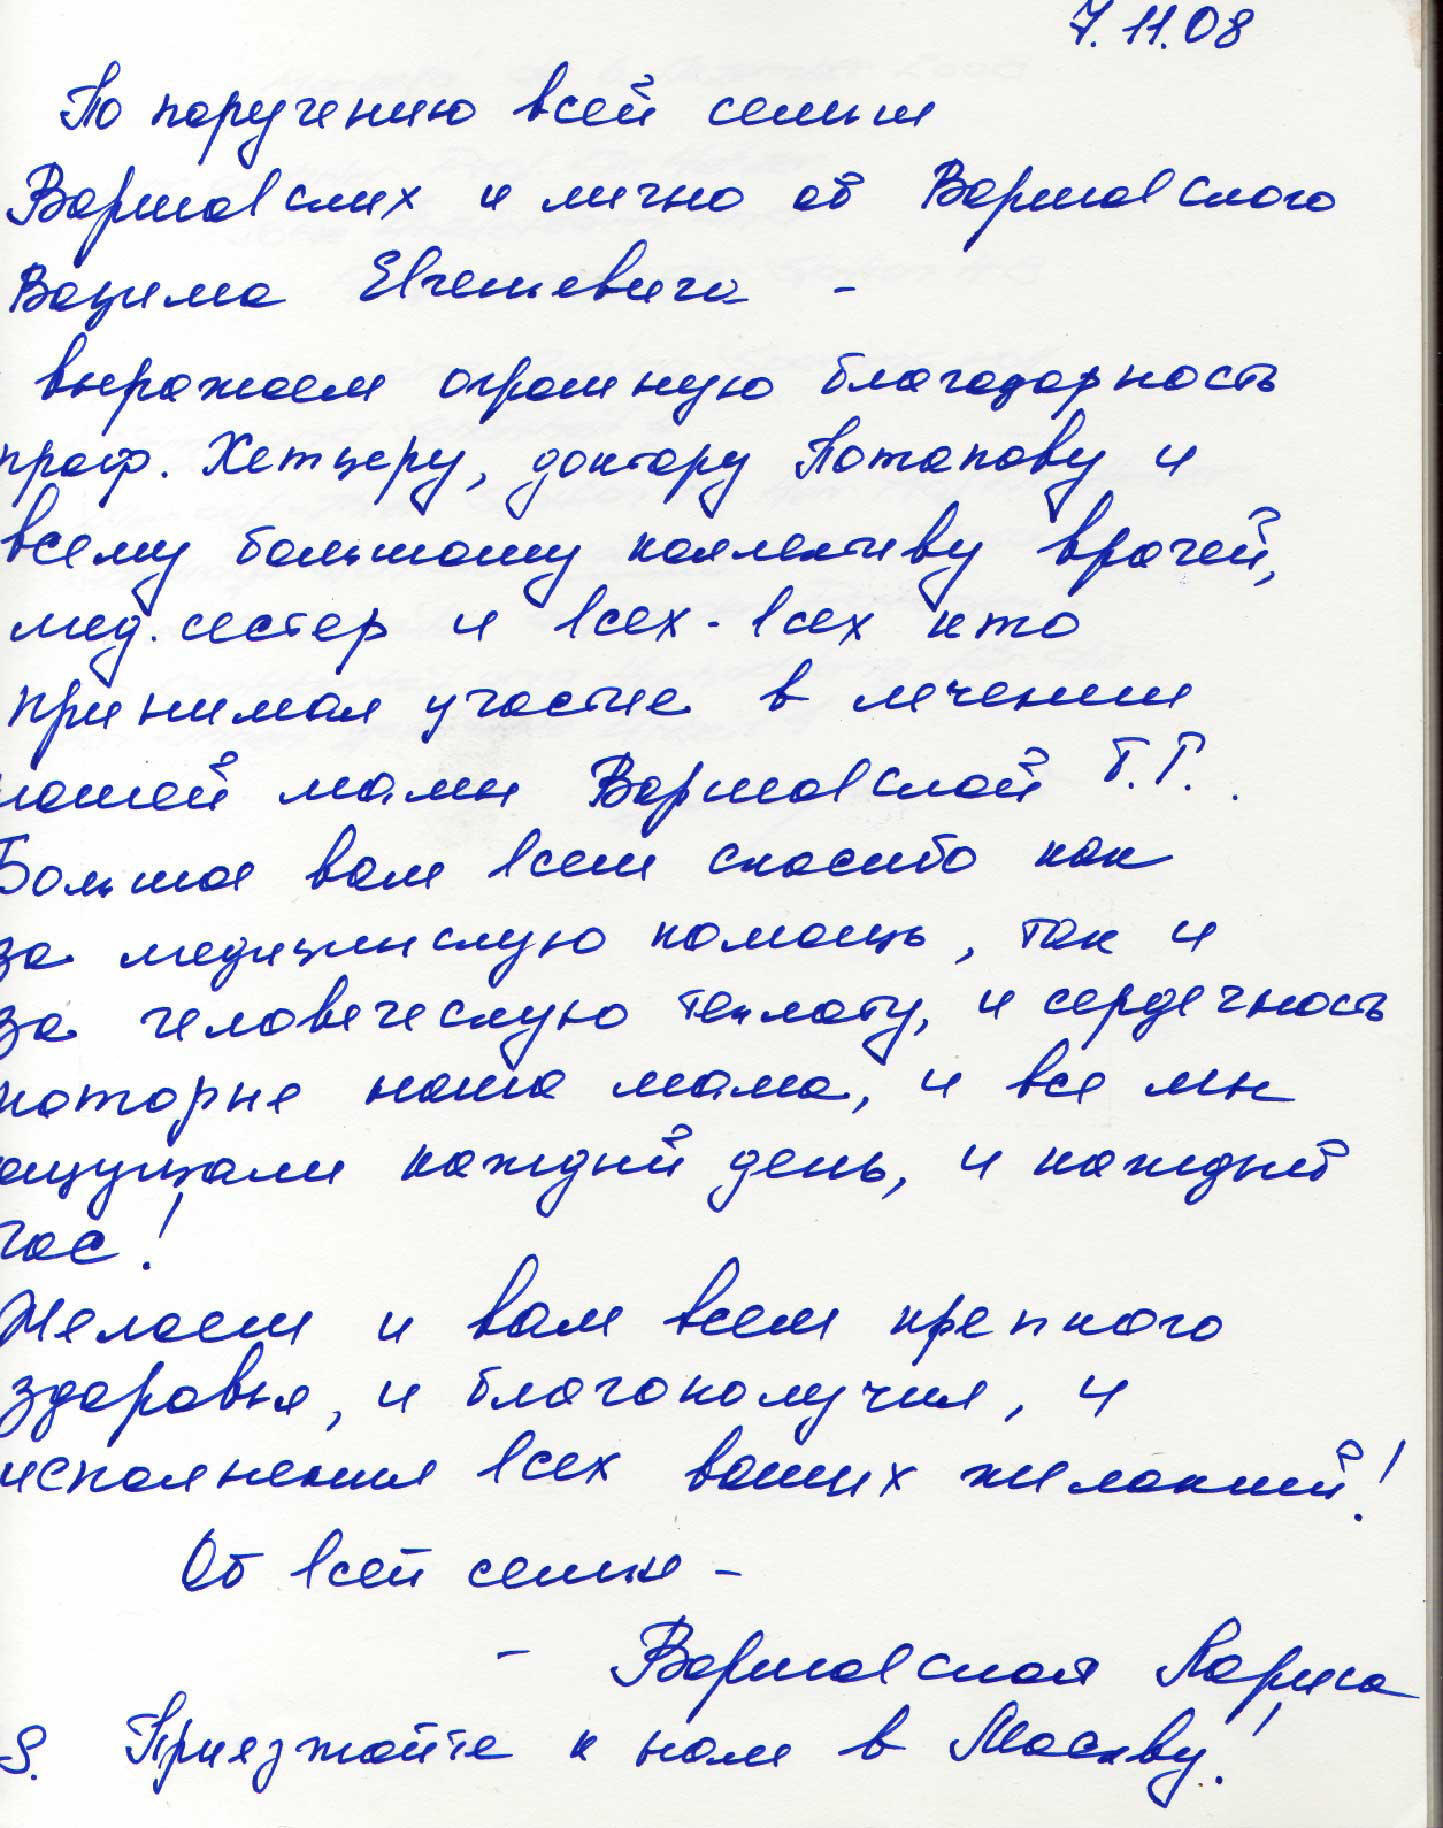 7.11.08
По поручению всей семьи
Варшавских и лично от Варшавского
Вадима Евгеньевича -
выражаем огромную благодарность
проф. Хетцеру, доктору Потапову и
всему большому коллективу врачей,
мед. сестер и всех-всех кто
принимал участие в лечении
нашей мамы Варшавской Т.Г.
Большое вам всем спасибо как
за медицинскую помощь, так и
за человеческую теплоту, и сердечность
которые наша мама, и все мы
ощущали каждый день, и каждый
час!
Желаем и вам всем крепкого
здоровья, и благополучия, и
исполнения всех ваших желаний!
От всей семьи -
- Варшавская Лариса
S. Приезжайте к нам в Москву!